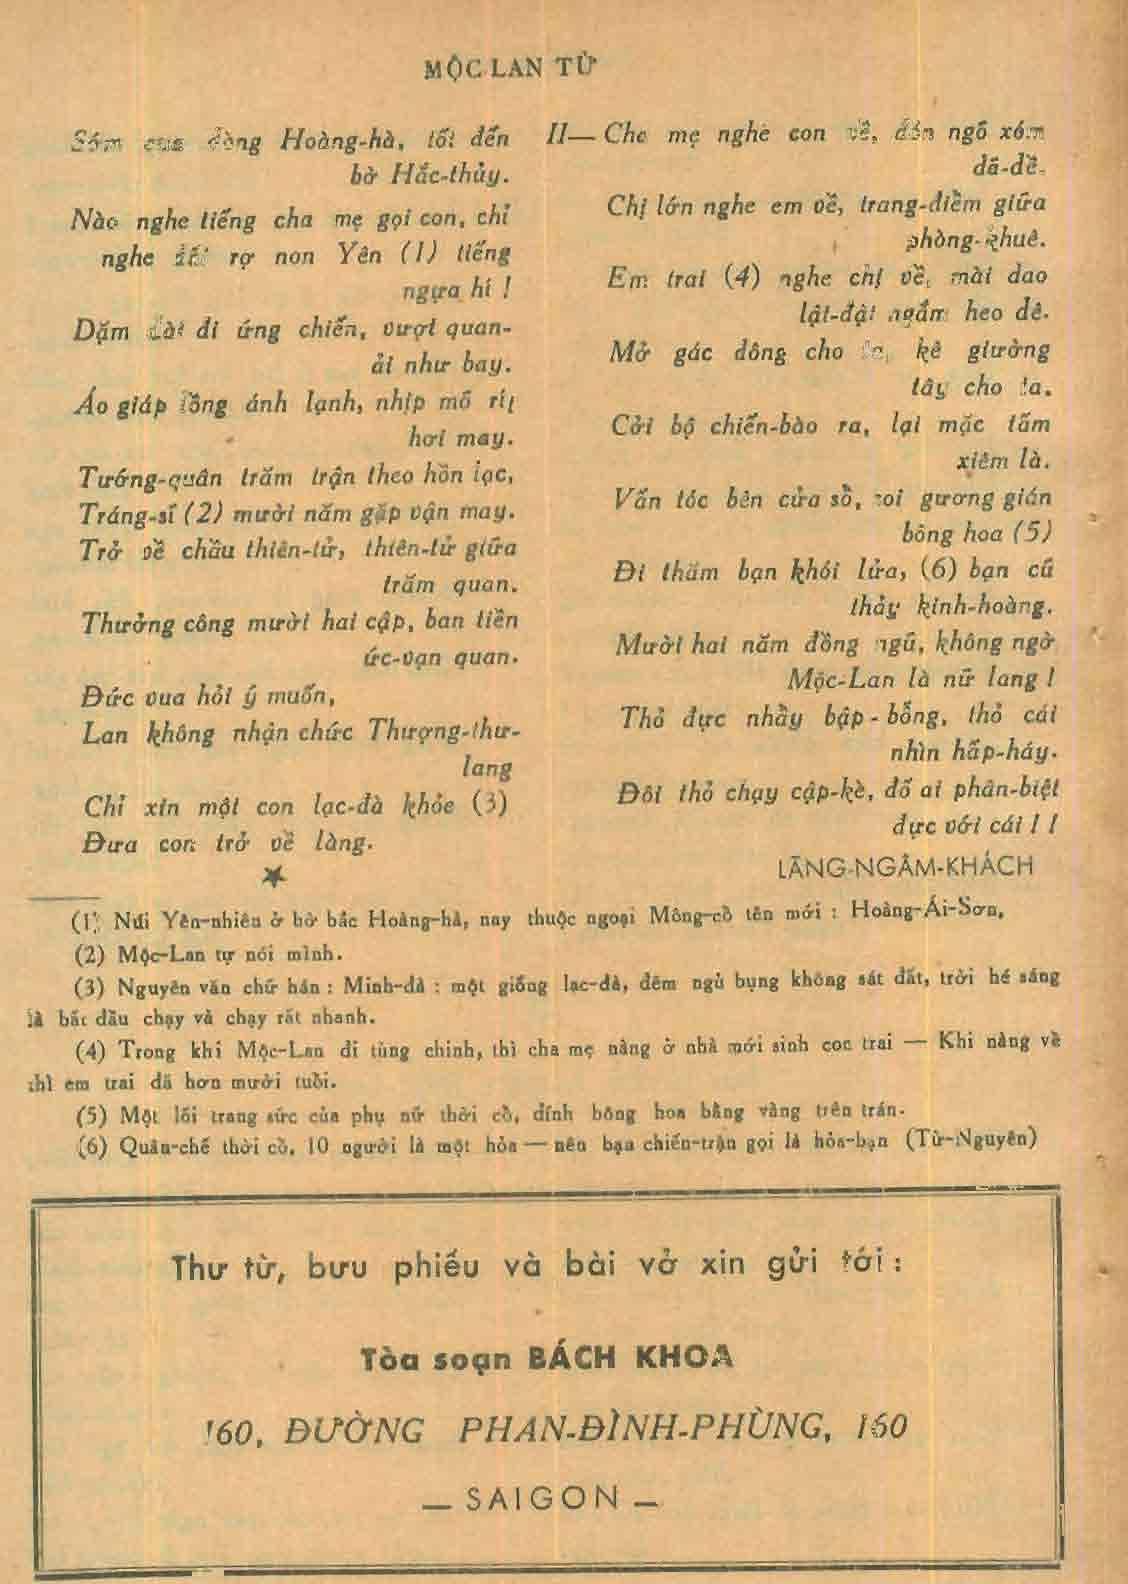 MỘC LAN TỪ
Sớm qua dòng Hoàng-hà, tối đến
bờ Hắc-thủy.
Nào nghe tiếng cha mẹ gọi con, chỉ
nghe rợ non Yên (1) tiếng
ngựa hí !
Dặm dài đi ứng chiến, vượt quan-
ải như bay.
Áo giáp lồng ánh lạnh, nhịp mõ rít
hơi may.
Tướng-quân trăm trận theo hồn lạc,
Tráng-sĩ (2) mười năm gặp vận may.
Trở về chầu thiên-tử, thiên-tử giữa
trăm quan.
Thưởng công mười hai cập, ban tiền
ức-vạn quan.
Đức vua hỏi ý muốn,
Lan không nhận chức Thượng-thư-
lang
Chỉ xin một con lạc-đà khỏe (3)
Đưa con trở về làng.
II— Cha mẹ nghe con về, đón ngõ xóm
đã-đề.
Chị lớn nghe em về, trang-điểm giữa
phòng-khuê.
Em trai (4) nghe chị về, mài dao
lật-đật ngắm heo dê.
Mở gác đông cho ta, kê giường
tây cho ta.
Cởi bộ chiến-bào ra, lại mặc tấm
xiêm là.
Vấn tóc bên cửa sổ, soi gương gián
bông hoa (5)
Đi thăm bạn khói lửa, (6) bạn cũ
thảy kinh-hoàng.
Mười hai năm đồng ngũ, không ngờ
Mộc-Lan là nữ lang !
Thỏ đực nhẩy bập-bỗng, thỏ cái
nhìn hấp-háy.
Đôi thỏ chạy cập-kè, đố ai phân-biệt
đực với cái ! !
LÃNG-NGÂM-KHÁCH
(1) Núi Yên-nhiên ở bờ bắc Hoàng-hà, nay thuộc ngoại Mông-cổ tên mới : Hoàng-Ái-Sơn.
(2) Mộc-Lan tự nói mình.
(3) Nguyên văn chữ hán : Minh-đà : một giống lạc-đà, đêm ngủ bụng không sát đất, trời hé sáng
là bắt đầu chạy và chạy rất nhanh.
(4) Trong khi Mộc-Lan đi tùng chinh, thì cha mẹ nàng ở nhà mới sinh con trai — Khi nàng về
thì em trai đã hơn mười tuổi.
(5) Một lối trang sức của phụ nữ thời cổ, đính bông hoa bằng vàng trên trán.
(6) Quân-chế thời cổ, 10 người là một hỏa — nên bạn chiến-trận gọi là hỏa-bạn (Từ-Nguyên)
Thư từ, bưu phiếu và bài vở xin gửi tới :
Tòa soạn BÁCH KHOA
160, ĐƯỜNG PHAN-ĐÌNH-PHÙNG, 160
— SAIGON —